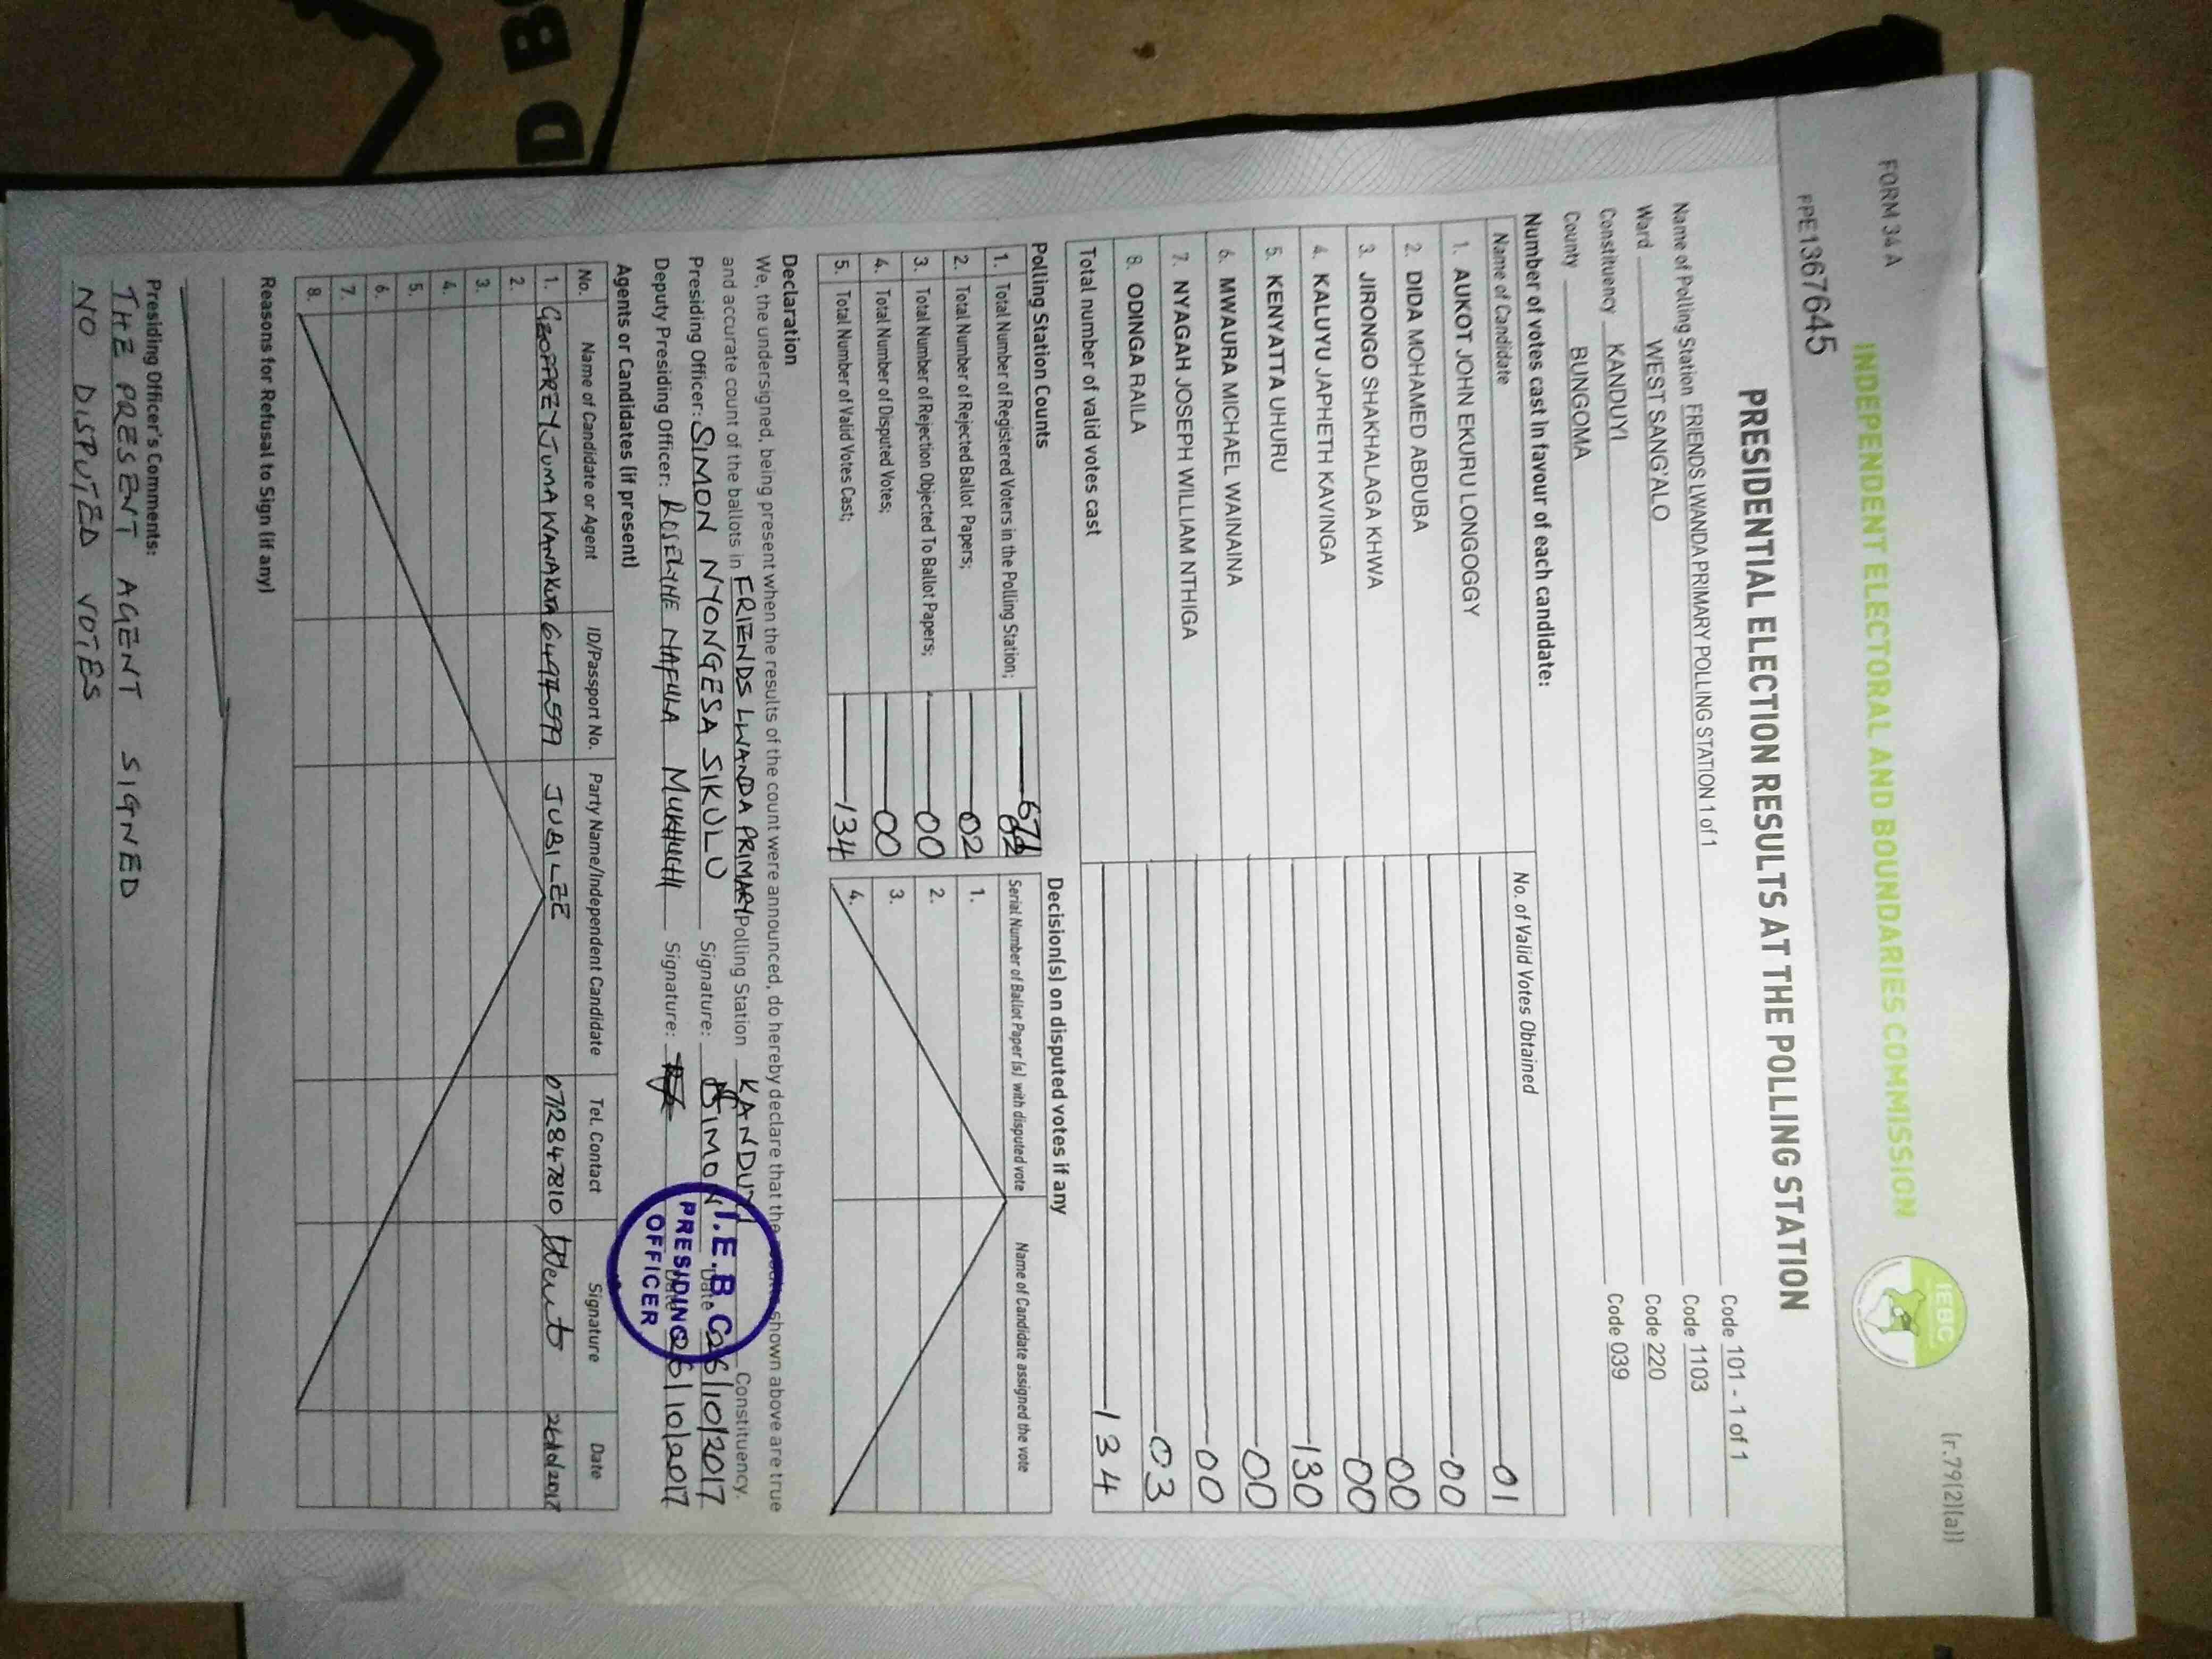 FORM 34 A
(r.79(2)(a))
INDEPENDENT ELECTORAL AND BOUNDARIES COMMISSION
IEBC
PPE1367645
PRESIDENTIAL ELECTION RESULTS AT THE POLLING STATION
Name of Polling Station FRIENDS LWANDA PRIMARY POLLING STATION 1 of 1 Code 101 - 1 of 1
Ward WEST SANG'ALO Code 1103
Constituency KANDUYI Code 220
County BUNGOMA Code 039
Number of votes cast in favour of each candidate:
Name of Candidate No. of Valid Votes Obtained
1. AUKOT JOHN EKURU LONGOGGY 01
2. DIDA MOHAMED ABDUBA 00
3. JIRONGO SHAKHALAGA KHWA 00
4. KALUYU JAPHETH KAVINGA 00
5. KENYATTA UHURU 130
6. MWAURA MICHAEL WAINAINA 00
7. NYAGAH JOSEPH WILLIAM NTHIGA 00
8. ODINGA RAILA 03
Total number of valid votes cast 134
Polling Station Counts
1. Total Number of Registered Voters in the Polling Station;
2. Total Number of Rejected Ballot Papers; 02
3. Total Number of Rejection Objected To Ballot Papers; 00
4. Total Number of Disputed Votes; 00
5. Total Number of Valid Votes Cast; 134
Decision(s) on disputed votes if any
Serial Number of Ballot Paper (s) with disputed vote Name of Candidate assigned the vote
1.
2.
3.
4.
Declaration
We, the undersigned, being present when the results of the count were announced, do hereby declare that the shown above are true
and accurate count of the ballots in FRIENDS LWANDA PRIMARY Polling Station KANDUYI Constituency.
Presiding Officer: SIMON NYONGESA SIKULU Signature: SIMON Date 26/10/2017
Deputy Presiding Officer: ROSELYNE NAFULA Signature: Date 26/10/2017
I.E.B.C
PRESIDING
OFFICER
Agents or Candidates (if present)
No. Name of Candidate or Agent ID/Passport No. Party Name/Independent Candidate Tel. Contact Signature Date
1. GEOFFREY JUMA JUBILEE 0712847810 26/10/2017
2.
3.
4.
5.
6.
7.
8.
Reasons for Refusal to Sign (if any)
Presiding Officer's Comments:
THE PRESENT AGENT SIGNED
NO DISPUTED VOTES
D B